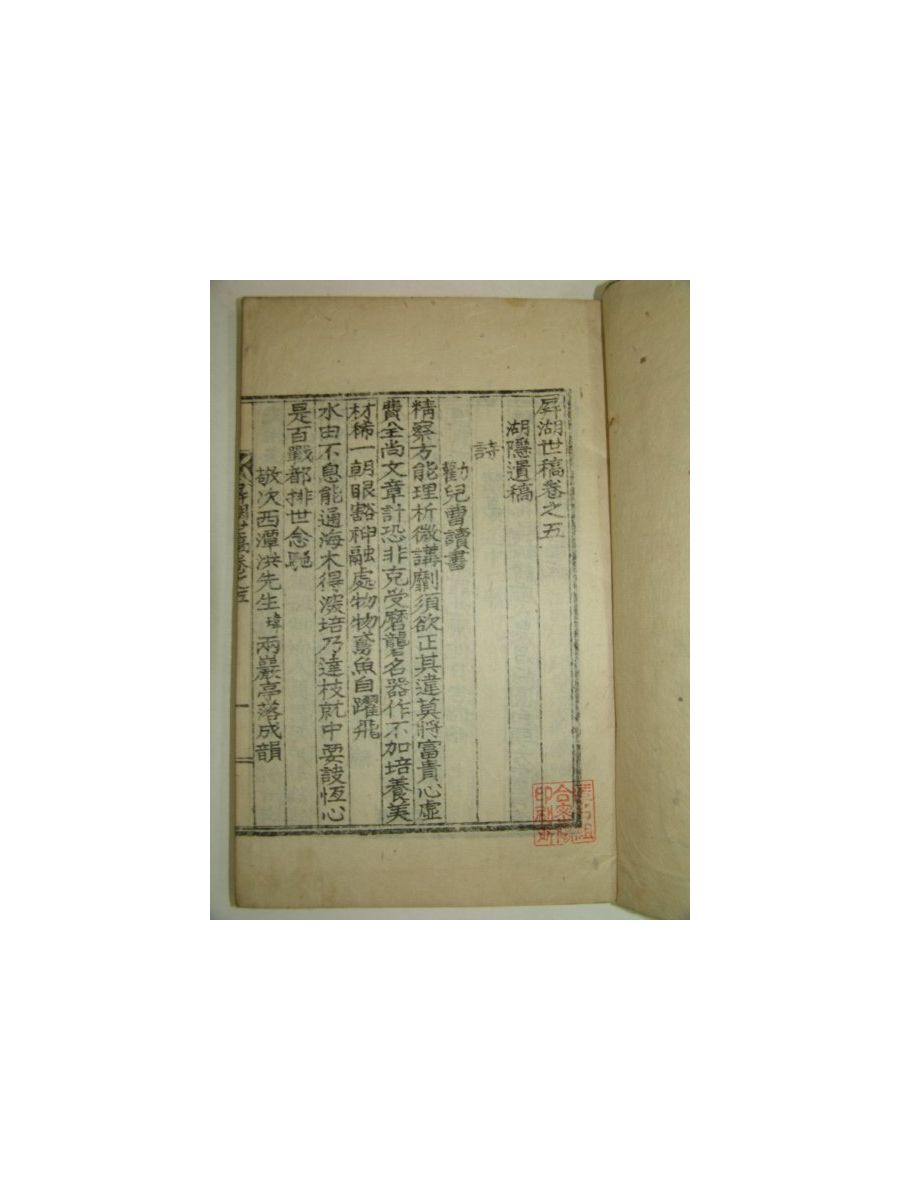 屛湖世稿卷之五
湖隱遺稿
詩
勸兒曹讀書
精察方能理析微講劘須欲正其違莫將富貴心虛
費全尚文章計恐非克受磨礱名器作不加培養美
材稀一朝眼豁神融處物物鳶魚自躍飛
水由不息能通海木得深培乃達枝就中要設恆心
是百戰都排世念馳
敬次西潭洪先生瑋兩巖亭落成韻
屛湖世稿卷之五
一